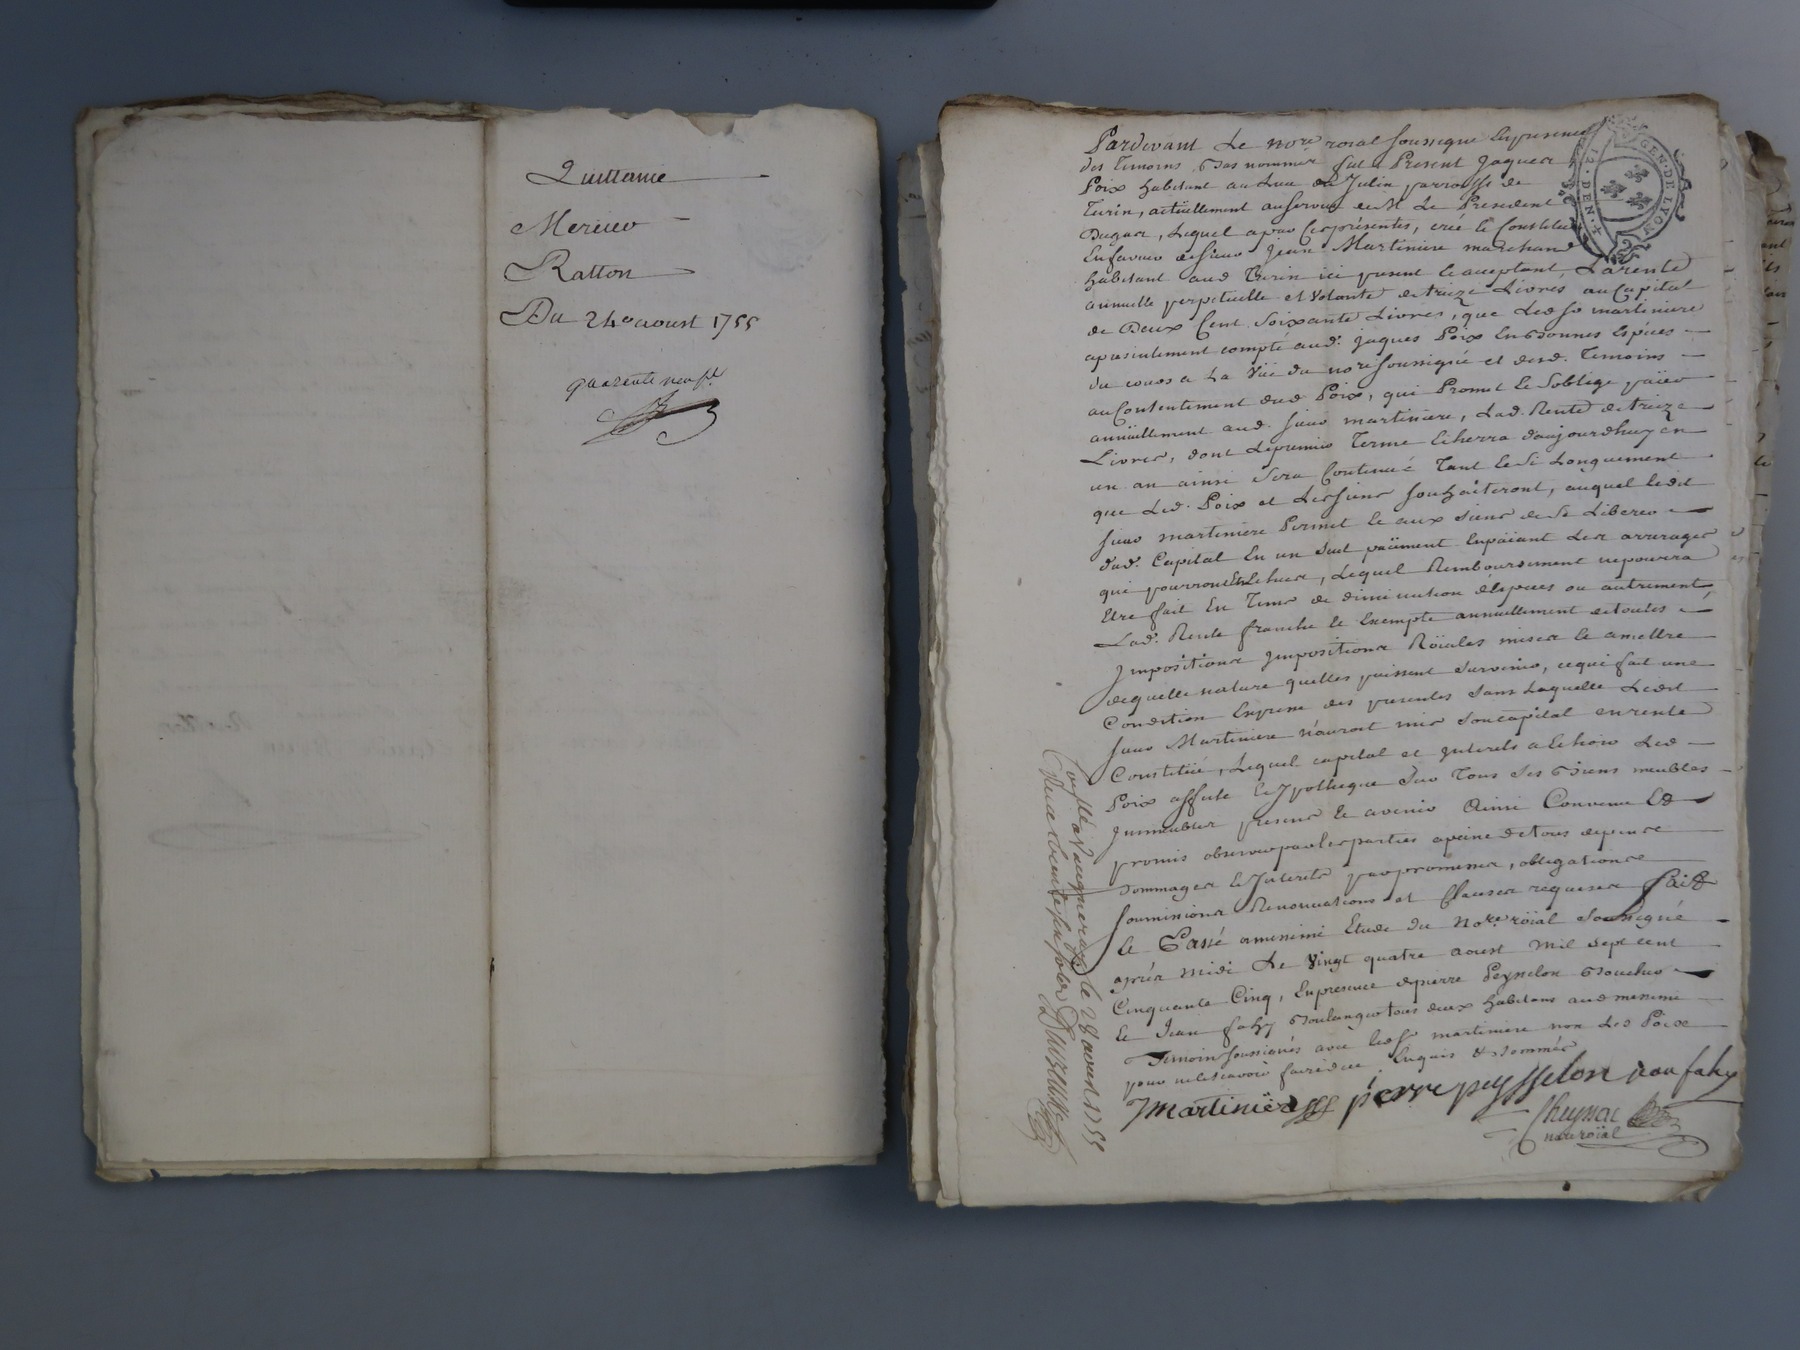 Quittance
Mercier
Ratton
Du 24e aoust 1755
quarente neuf.
GEN. DE LYON
12. DEN. 4
Pardevant Le nore roial soussigné en presence
des temoins Bas nommés fut a Present Jaques
Poix habitant au Lieu de Julin parroisse de
Turin, actüellement au service de M Le President
Dugas, Lequel apar ces présentes, créé et Constitué
En faveur de sieur Jean Martiniere marchand
habitant aud Turin ici present et acceptant, La rente
annuelle perpetuelle et volante de treize Livres au Capital
de Deux Cent Soixante Livres, que Led sr martiniere
a presentement compté aud. jaques Poix En Bonnes Espèces
du cours a La Vüe du nore soussigné et desd. Temoins
au Consentement dud Poix, qui Promet et S'oblige païer
annüellement aud. sieur martiniere, Lad. Rente de treize
Livres, dont Le premier Terme Echerra d'aujourdhuy en
un an ainsi Sera Continué Tant et Si Longuement
que Led. Poix et Les siens souhaiteront, auquel Ledit
sieur martiniere Permet et aux siens de Se Liberer
dud. Capital En un Seul païment En païant Les arrerages
qui pourront En Echus, Lequel Remboursement ne pourra
Etre fait En Tems de diminution d'Especes ou autrement,
Lad. Rente franche et Exempte annuellement de toutes
Impositions Impositions Roïales mises et a mettre
de quelle nature quelles puissent Survenir, ce qui fait une
Condition Expresse des presentes Sans Laquelle Ledit
sieur Martiniere n'auroit mis Son capital en rente
Constitüé, Lequel capital et Interets a Echoir Led
Poix affecte et Ypotheque Sur Tous Ses Biens meubles
Immeubles presens et avenir Ainsi Convenu Et
promis observer par les parties a peine de tous depens
Dommages et Interets par promesses, obligations
soumissions Renonciations et Clauses requises Fait
Et Passé a messimi Etude du Nore roïal Soussigné
après midi Le Vingt quatre aoust mil sept cent
Cinquante Cinq, En presence de pierre Peysselon Boucher
et Jean fahy Boulanger tous deux habitans aud messimi
Temoins soussignés avec Led sr martiniere non Led Poix
pour ne le scavoir faire de ce Enquis & Sommés
Martiniere pierre peysselon jean fahy
nore roïal
Con.llé a Vaugneray le 28 aoust 1755